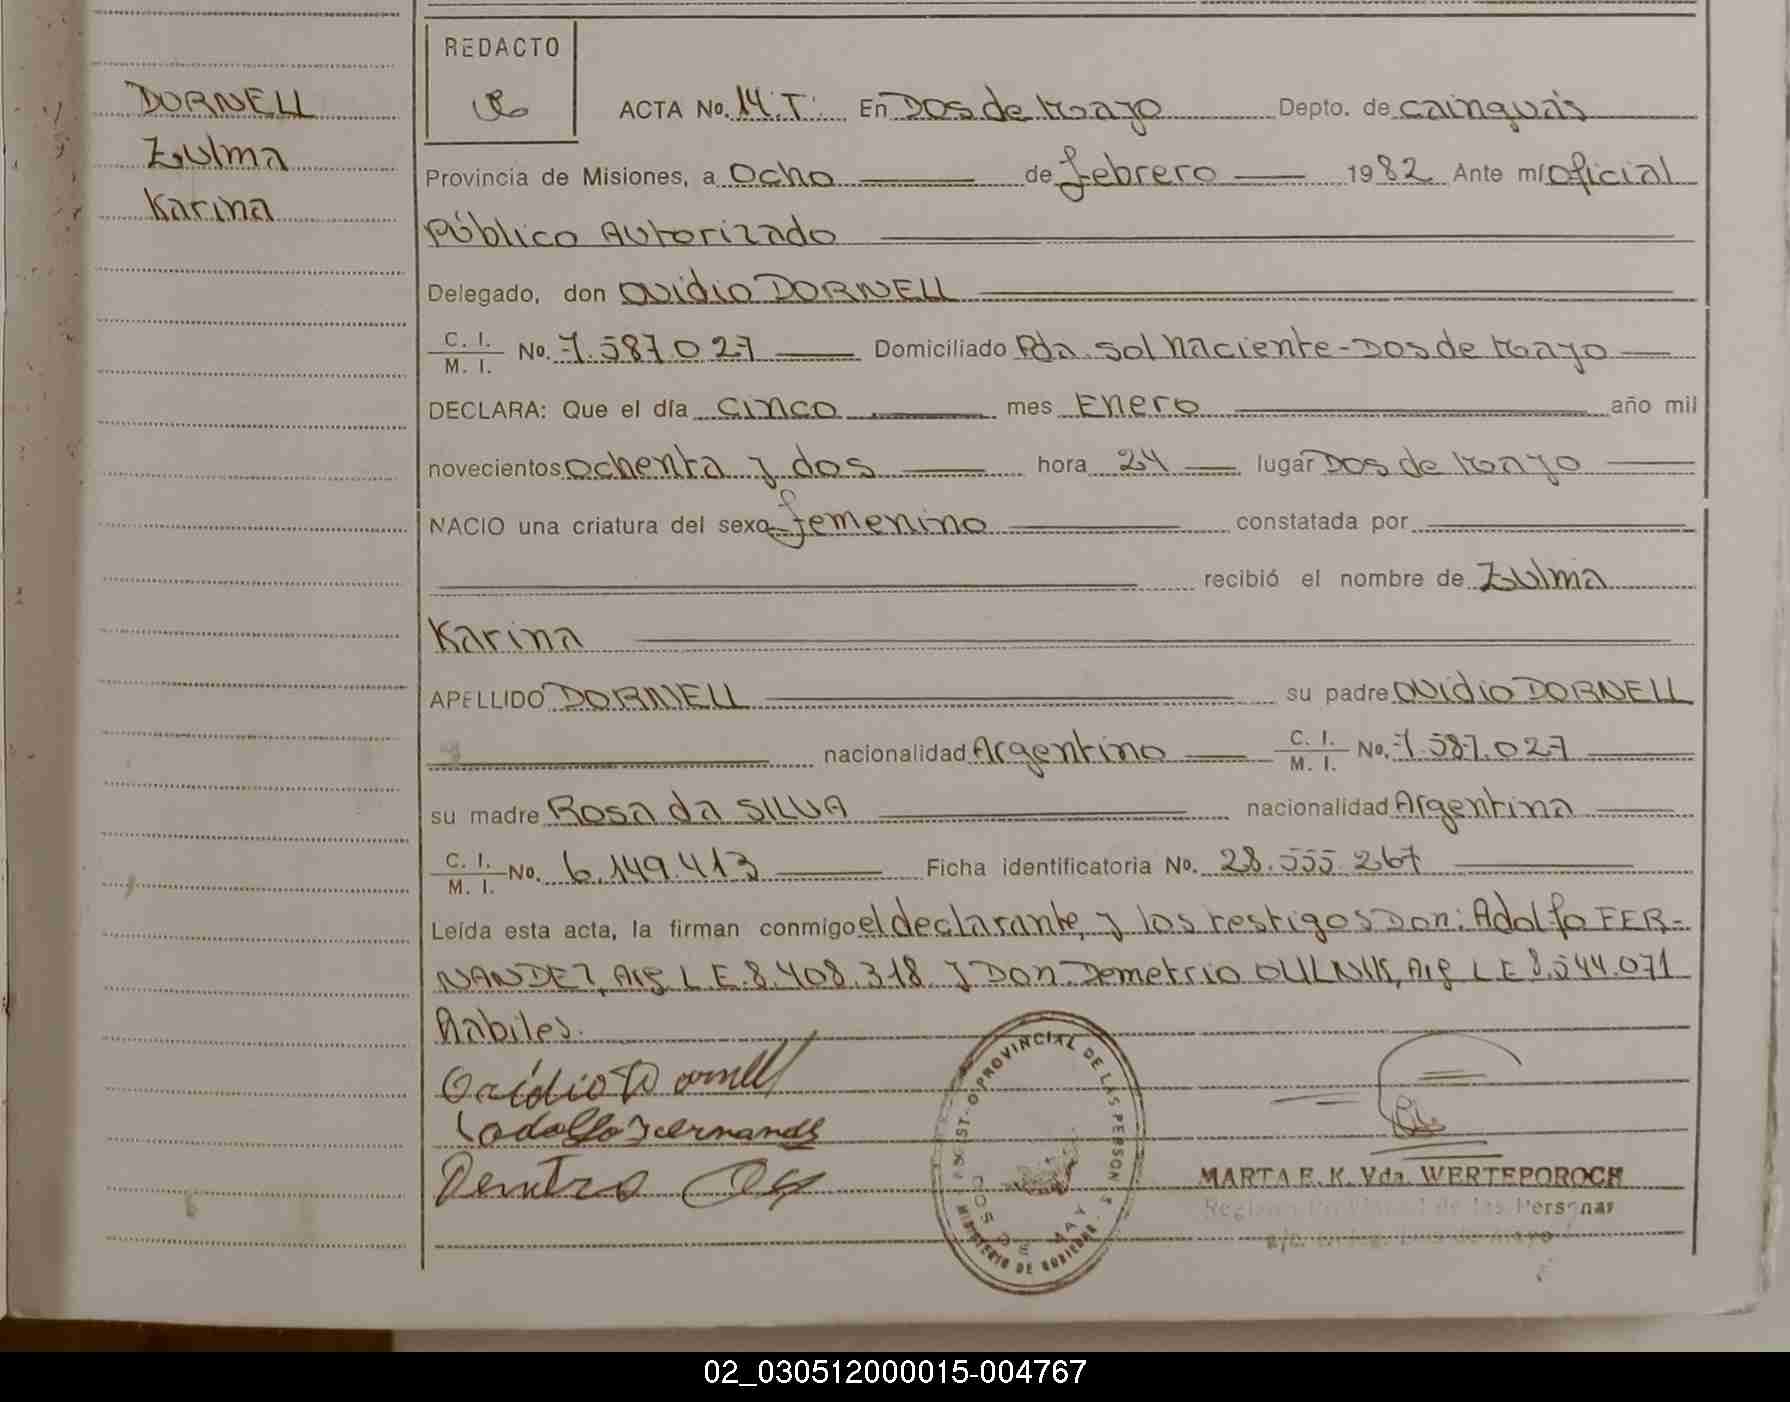 DORNELL
Zulma
Karina
REDACTO
ACTA No. 14.T. En Dos de Mayo Depto. de Cainguás
Provincia de Misiones, a Ocho de febrero 1982 Ante mí Oficial
Público Autorizado
Delegado, don Ovidio DORNELL
C. I. / M. I. No. 7.587.027 Domiciliado Pda. Sol Naciente - Dos de Mayo
DECLARA: Que el día cinco mes Enero año mil
novecientos ochenta y dos hora 24 lugar Dos de Mayo
NACIO una criatura del sexo femenino constatada por
recibió el nombre de Zulma
Karina
APELLIDO DORNELL su padre Ovidio DORNELL
nacionalidad Argentino C. I. / M. I. No. 7.587.027
su madre Rosa da SILVA nacionalidad Argentina
C. I. / M. I. No. 6.149.413 Ficha identificatoria No. 28.555.267
Leída esta acta, la firman conmigo el declarante, y los testigos Don: Adolfo FER-
NANDEZ, Arg L.E. 8.408.318 y Don Demetrio Arg L E 8.544.071
habiles.
Ovidio Dornell
PROVINCIAL DE LAS PERSON S
DOS DE MAY
MINISTERIO DE GOBIERNO
MARTA E. K. Vda. WERTEPOROCH
Registro Provincial de las Personas
02_030512000015-004767